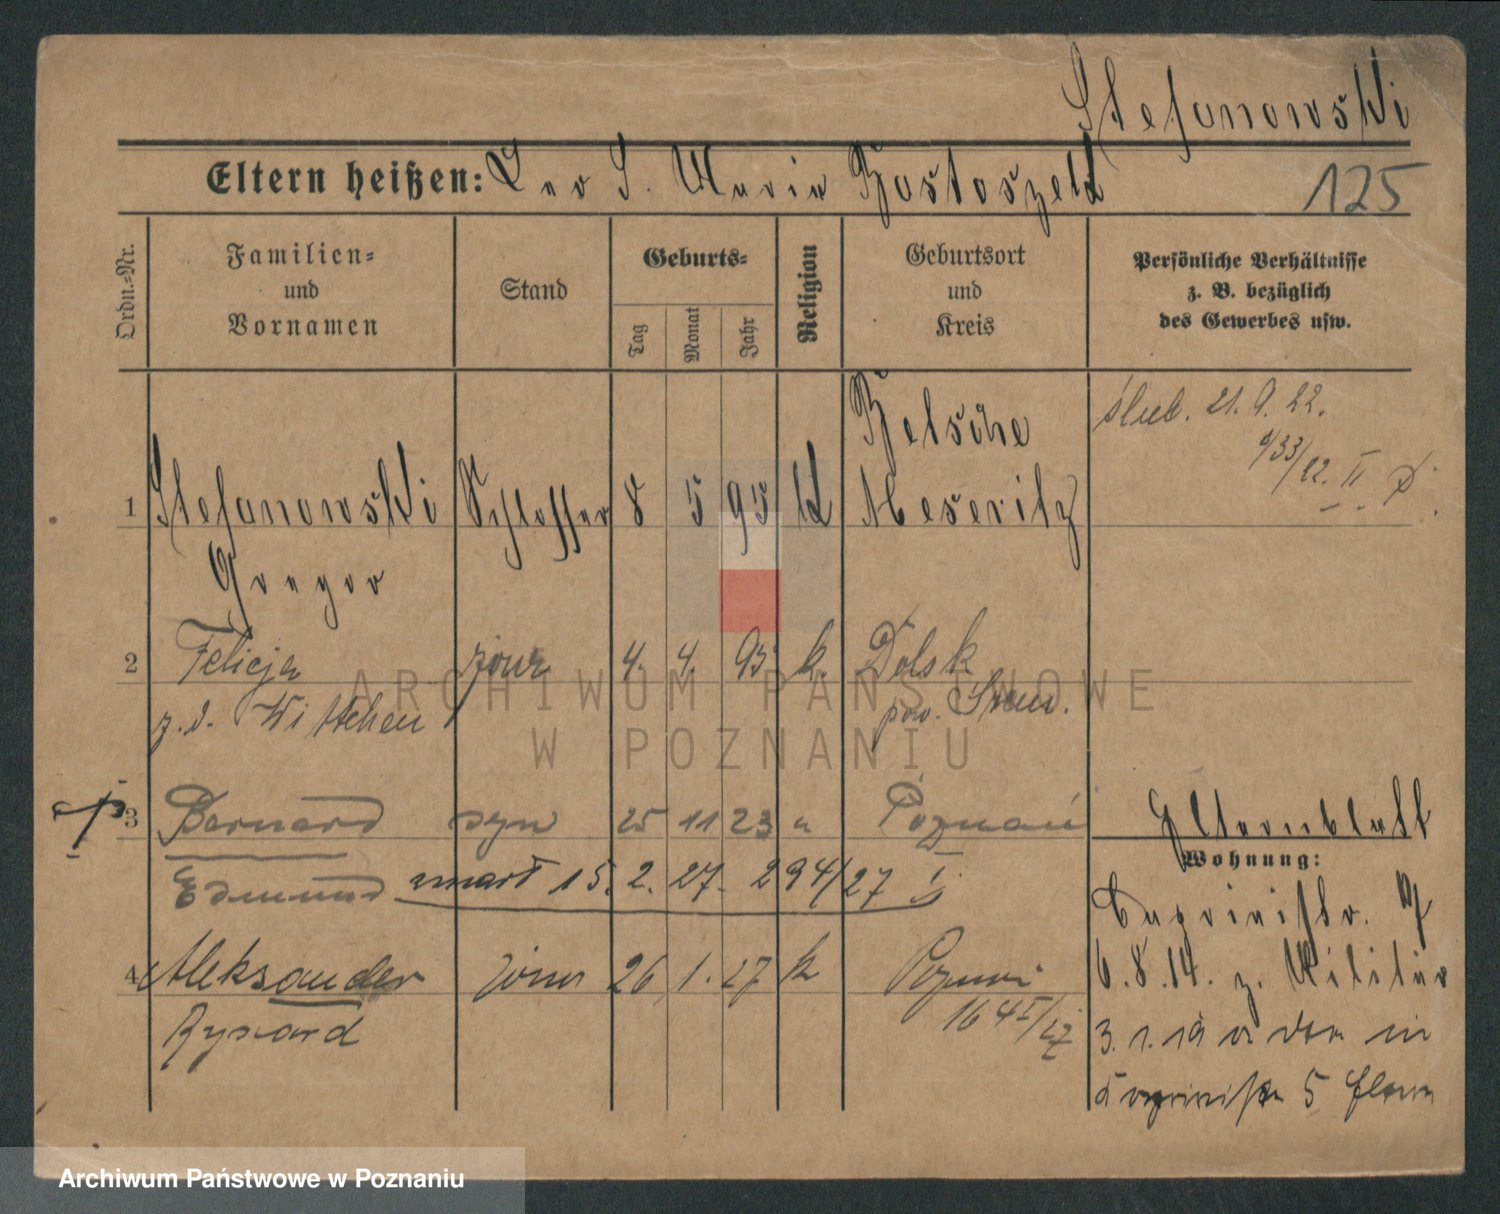 Stefanowski
Eltern heißen: Leo S. Maria
125
Ordn.-Nr.
Familien- und Vornamen
Stand
Geburts-
Tag
Monat
Jahr
Religion
Geburtsort und Kreis
Persönliche Verhältnisse
z. B. bezüglich
des Gewerbes usw.
1 Stefanowski Schlosser 8 5 95 k Betsche
Meseritz
Gregor
ślub. 21. 9. 22.
2 Felicja żona 4. 4. 95 k. Dolsk
z.d. Wittchen pow. Śrem.
3 Bernard syn 25 11 23 " Poznań
Edmund zmarł 15. 2. 27. 294/27 I.
4 Aleksander 26 1. 27 k Poznań
Ryszard 1645/27
Elternblatt
Wohnung:
6.8.14. z. Militär
3.1.19
ARCHIWUM PAŃSTWOWE
W POZNANIU
Archiwum Państwowe w Poznaniu